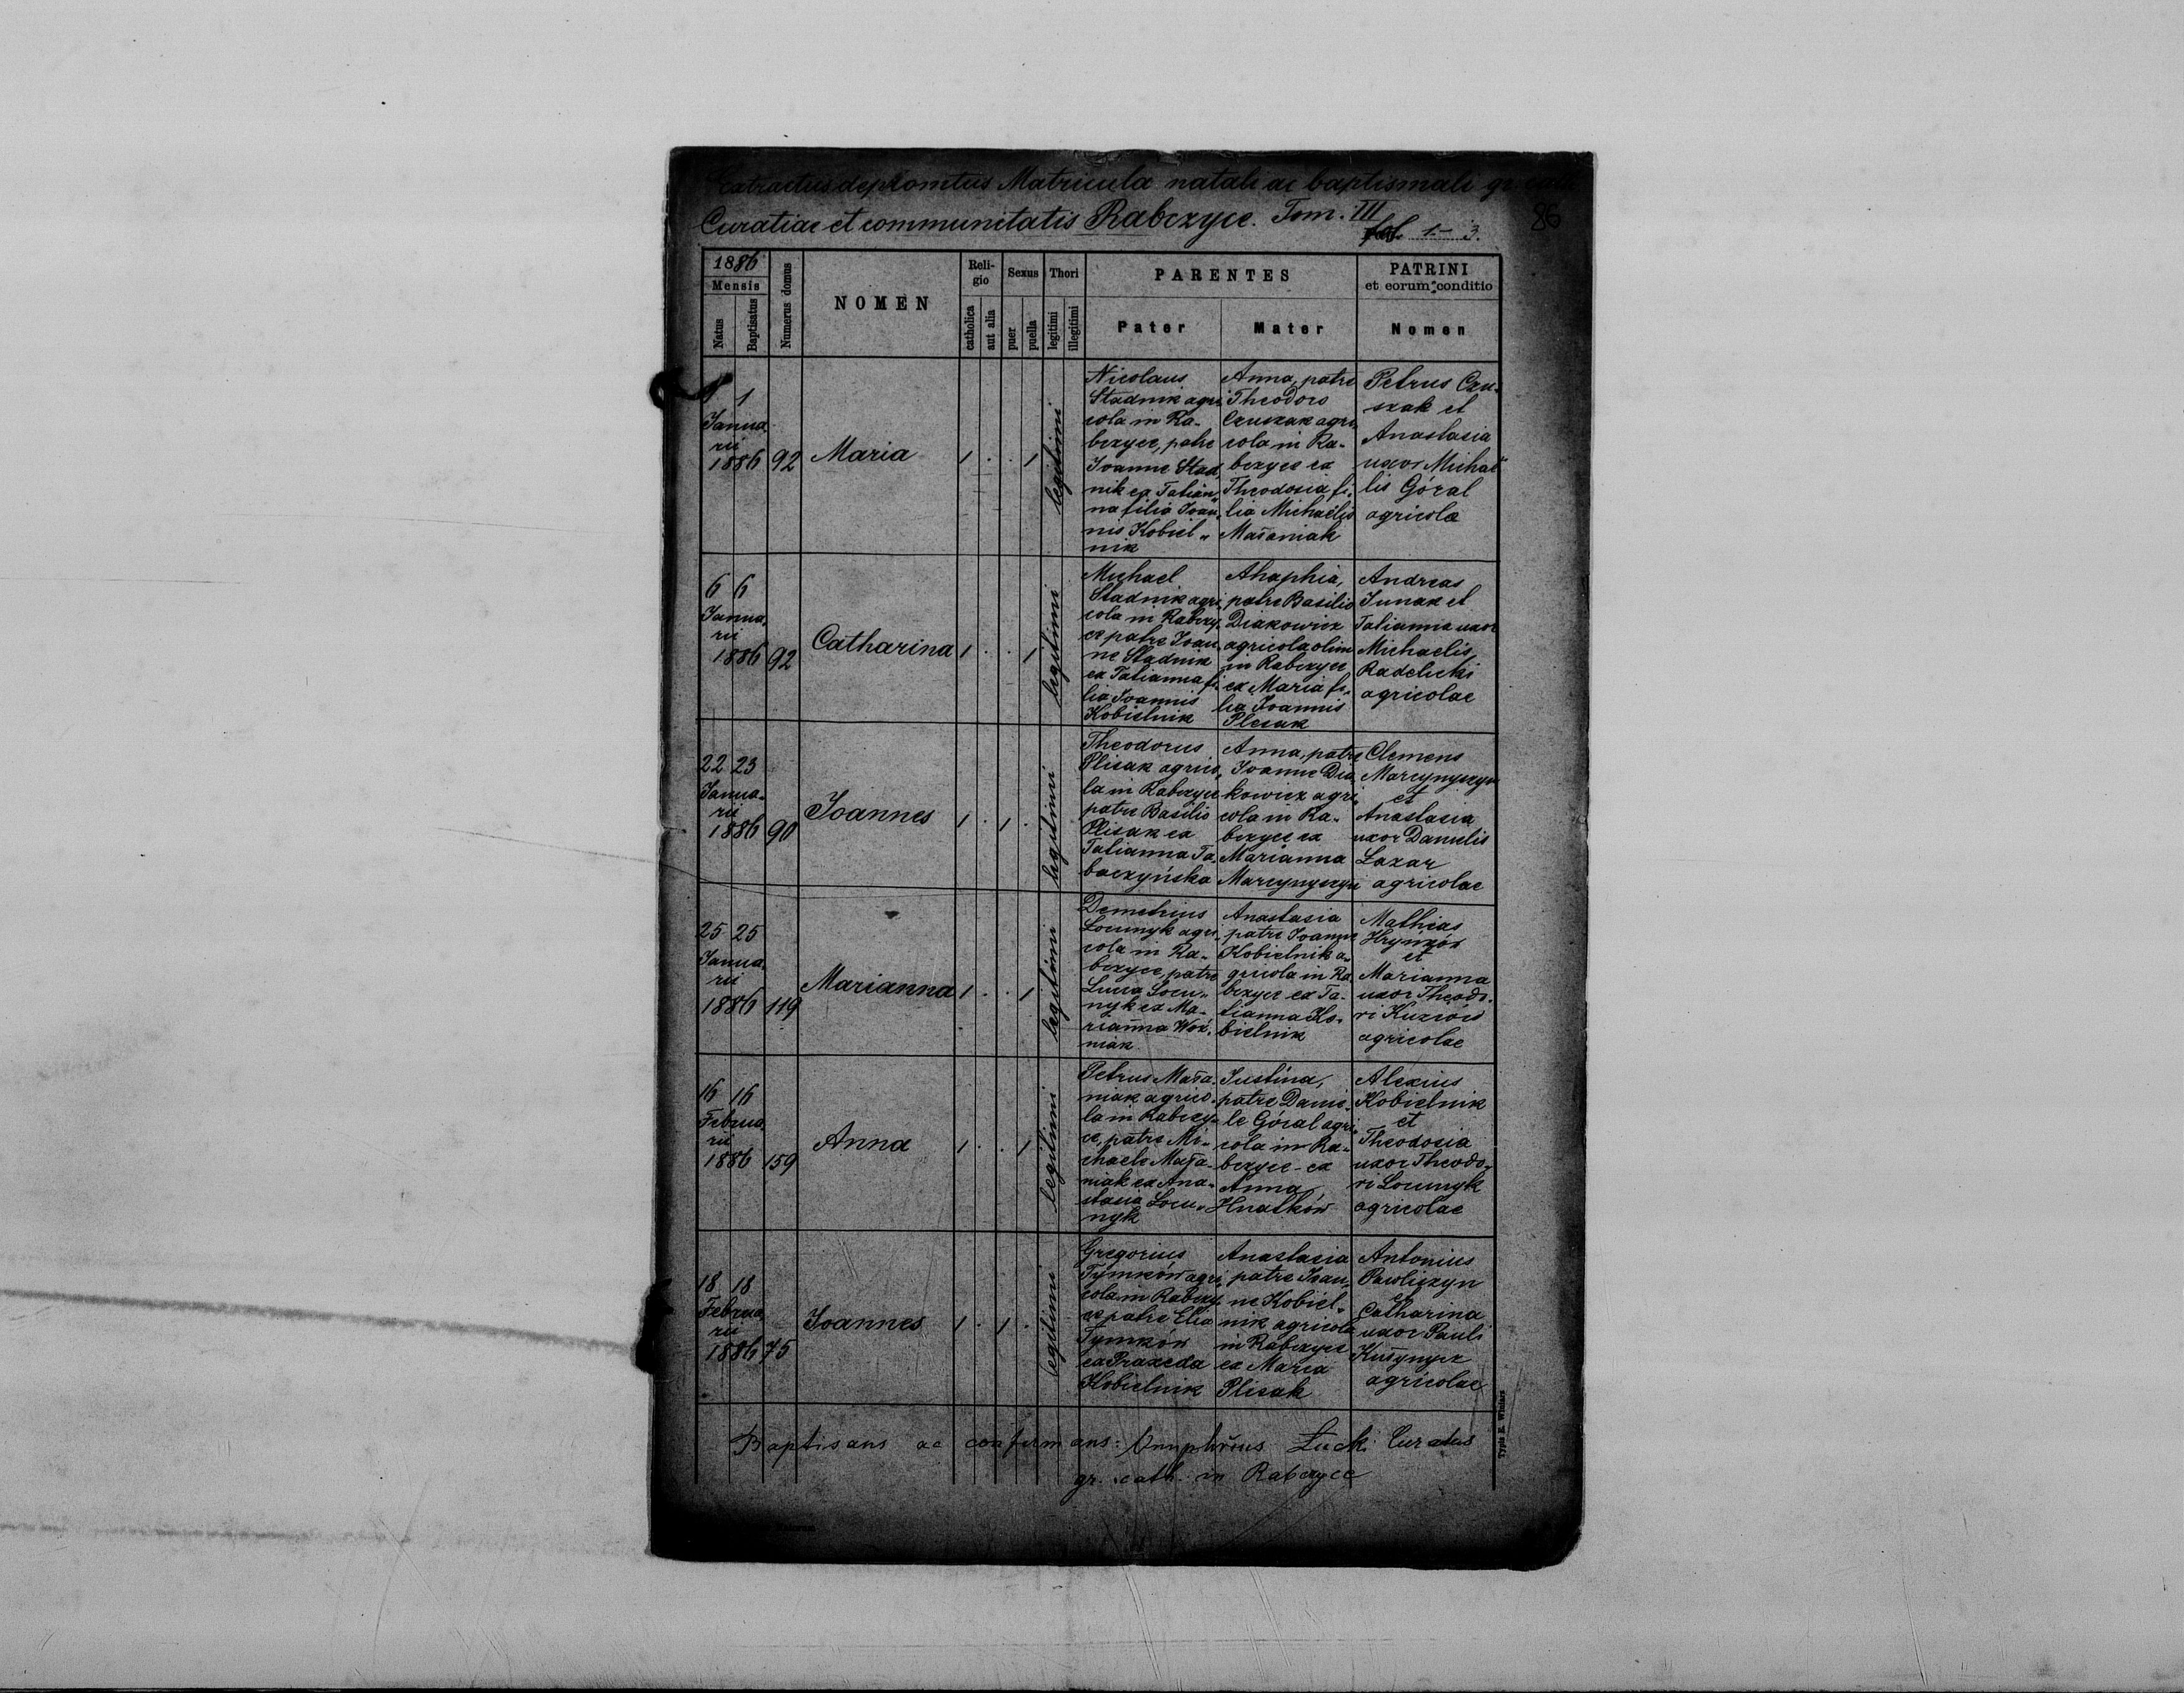 Extractus depromtus Matricula natali ac baptismali gr. cath.
Curatiae et communitatis Rabczyce. Tom. III
fol. 1.- 3.
86
1886
Mensis
Natus
Baptisatus
Numerus domus
NOMEN
Reli-
gio
catholica
aut alia
Sexus
puer
puella
Thori
legitimi
illegitimi
PARENTES
Pater
Mater
PATRINI
et eorum conditio
Nomen
1
Janua
rii
1886 92
Maria
1 . . 1
legitimi
Nicolaus
Stadnik agri
cola in Ra-
bczyce, patre
Ioanne Stad
nik ex Tatian
na filia Ioan
nis Kobiel„
nik
Anna, patre
Theodoro
Czuszak agri
cola in Ra-
bczyce ex
Theodosia fi„
lia Michaëlis
Mataniak
Petrus Czu-
szak et
Anastasia
uxor Michaë
lis Góral
agricolae
6 6
Janua.
rii
1886 92
Catharina
1 . . 1
legitimi
Michael
Stadnik agri
cola in Rabczy
ce patre Ioan
ne Stadnik
ex Tatianna fi
lia Joannis
Kobielnik
Ahaphia,
patre Basilio
Diakowicz
agricola olim
in Rabczyce
ex Maria fi„
lia Joannis
Plesak
Andreas
Junak et
Tatianna uxor
Michaelis
Radelicki
agricolae
22 23
Janua-
rii
1886 90
Joannes
1 . 1 .
legitimi
Theodorus
Plisak agrico„
la in Rabczyce
patre Basilio
Plisak ex
Tatianna Ta-
baczyńska
Anna, patre
Joanne Dia
kowicz agri„
cola in Ra-
bczyce ex
Marianna
Marcynyszyn
Clemens
Marcynyszyn
et
Anastasia
uxor Danielis
Lazar
agricolae
25 25
Janua.
rii
1886 119
Marianna
1 . . 1
legitimi
Demetrius
Locunyk agri
cola in Ra-
bczyce, patre
Luca Locu„
nyk ex Ma-
rianna Woź.
niak
Anastasia
patre Ioanne
Kobielnik a-
gricola in Ra
bczyce ex Ta-
tianna Ko-
bielnik
Mathias
Hrynków
et
Marianna
uxor Theodo.
ri Kuziów
agricolae
16 16
Februa.
rii
1886 159
Anna
1 . . 1
legitimi
Petrus Mata-
niak agrico-
la in Rabczy-
ce, patre Mi-
chaele Mata-
niak ex Ana-
stasia Locu„
nyk
Justina,
patre Danie-
le Góral agri
cola in Ra-
bczyce - ex
Anna
Hnatków
Alexius
Kobielnik
et
Theodosia
uxor Theodo-
ri Locunyk
agricolae
18 18
Februa.
rii
1886 75
Joannes
1 . 1 .
legitimi
Gregorius
Tymków agri
cola in Rabczy
ce patre Elia
Tymków
ex Praxeda
Kobielnik
Anastasia
patre Joan„
ne Kobiel„
nik agricola
in Rabczyce
ex Maria
Plisak
Antonius
Pawliszyn
et
Catharina
uxor Pauli
agricolae
Baptisans ac confirmans: Onuphrius Łucki Curatus
gr. cath. in Rabczyce